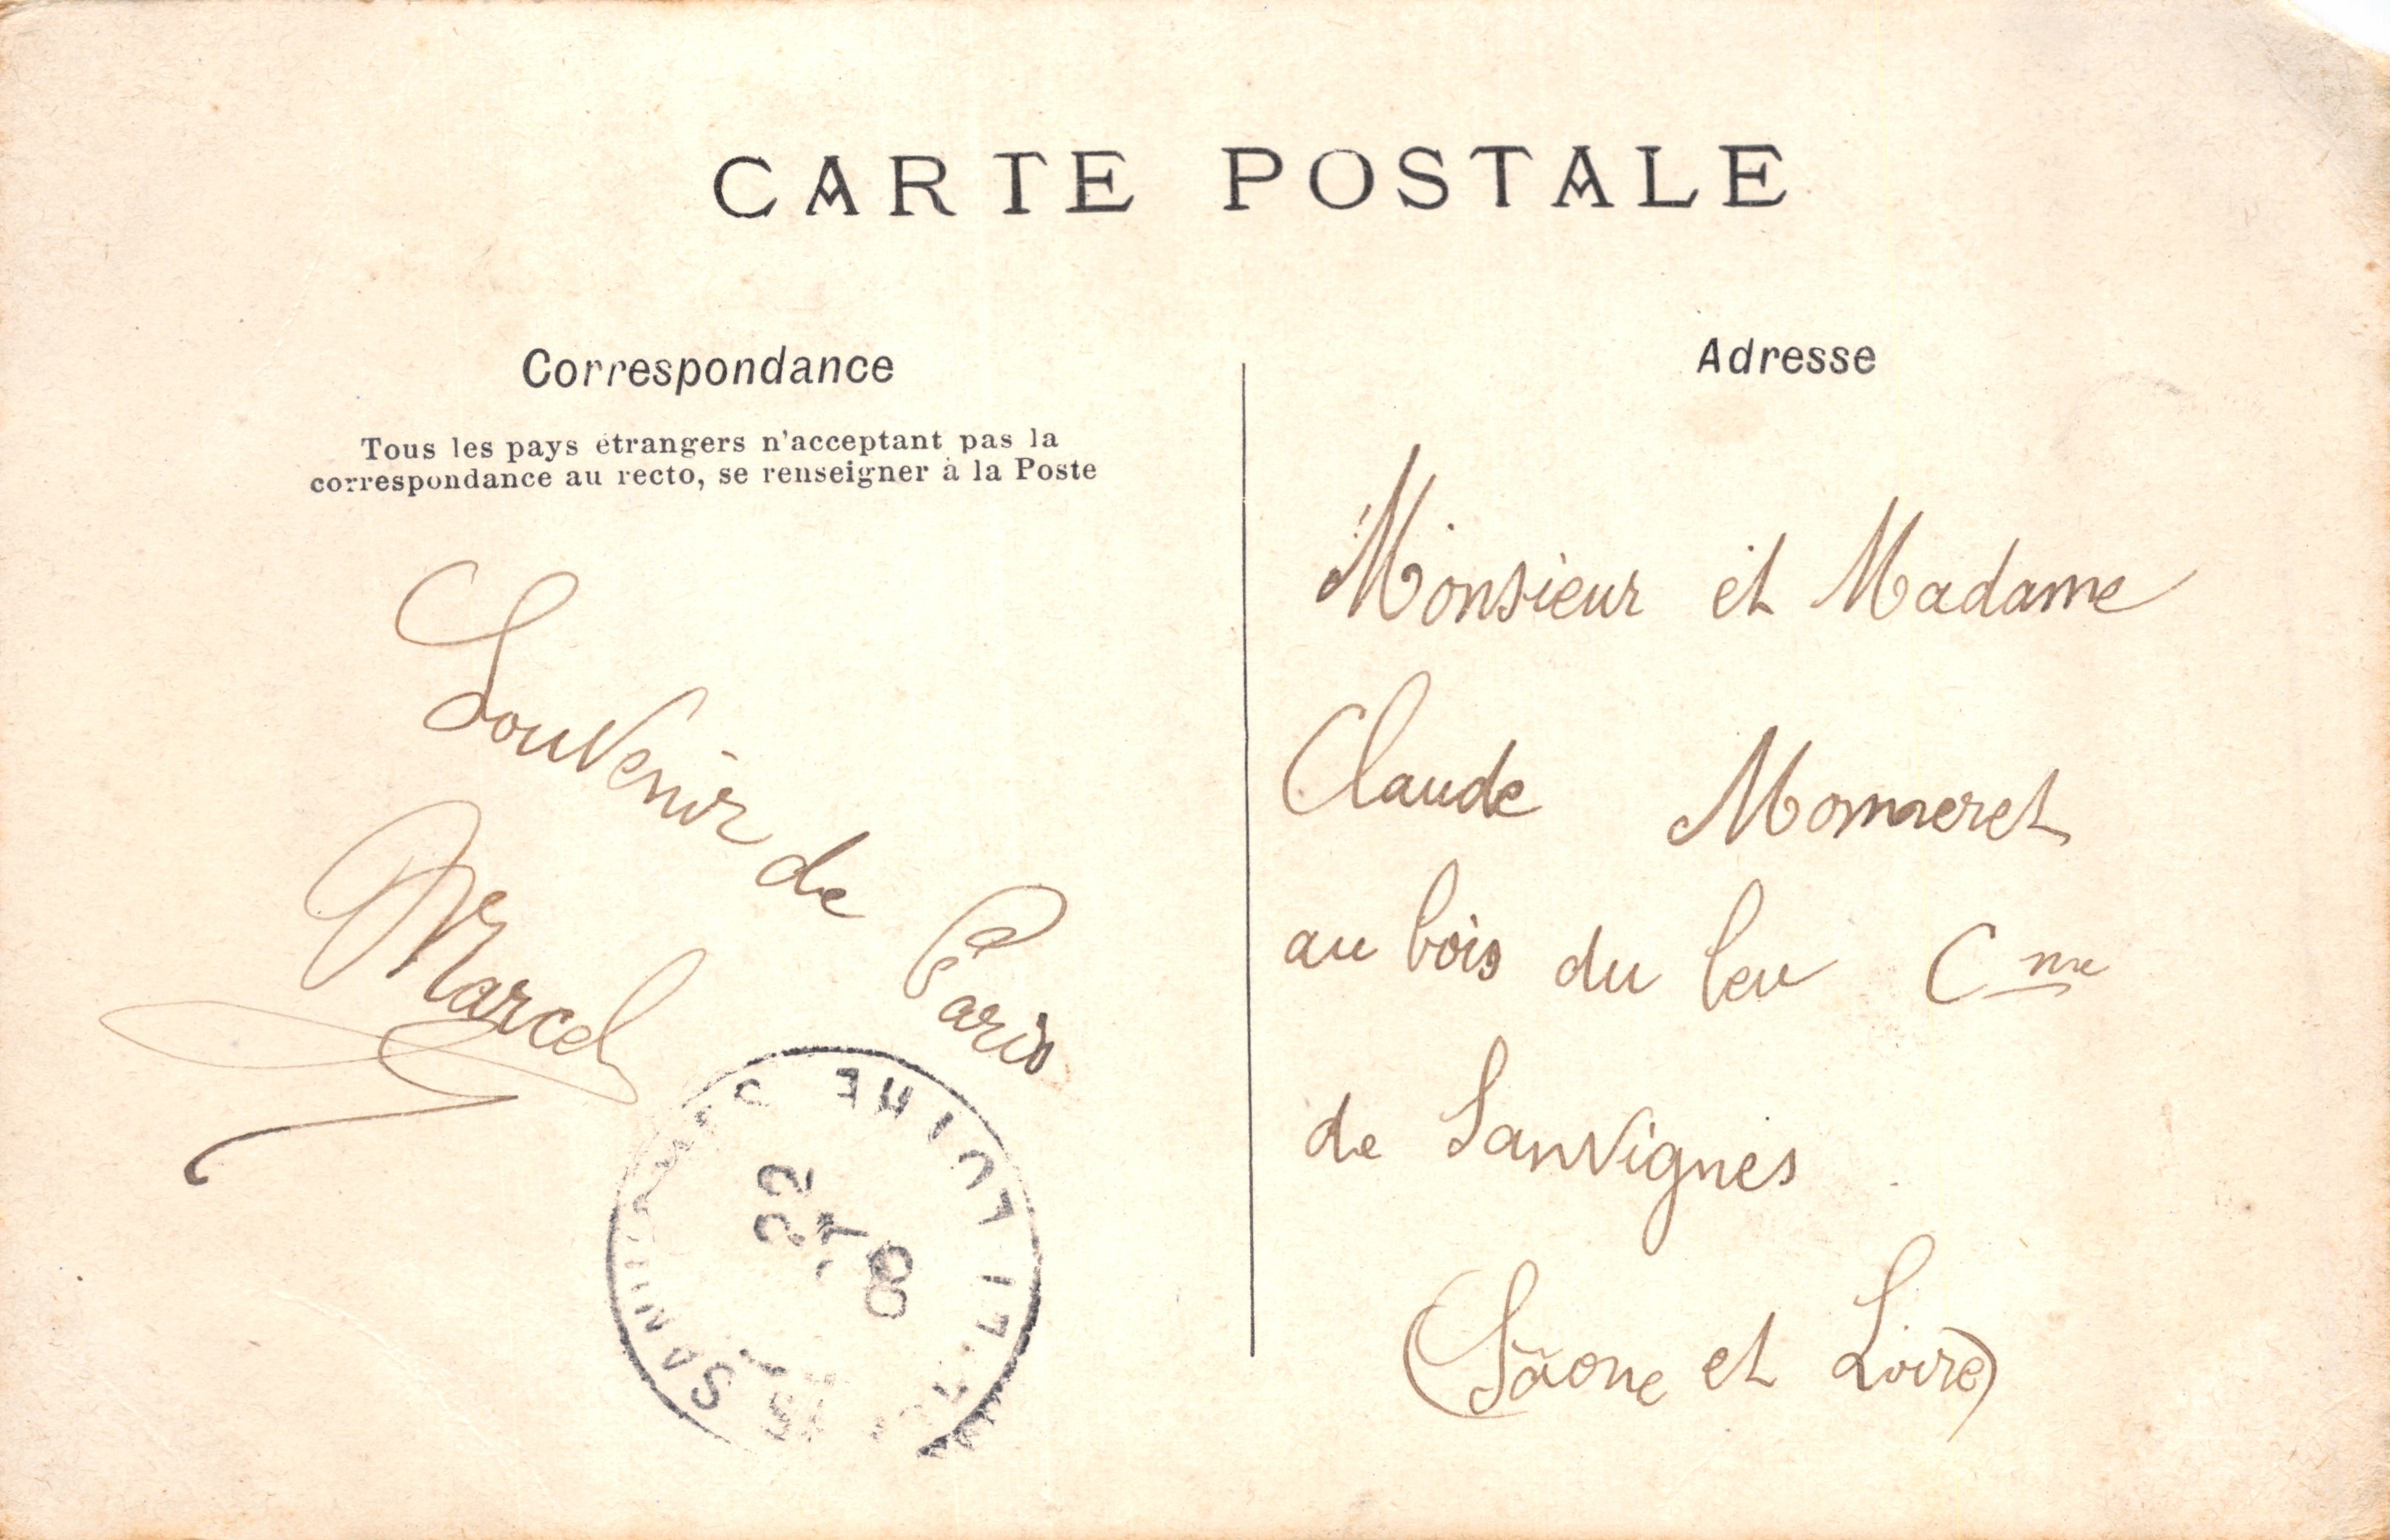 CARTE POSTALE
Correspondance
Tous les pays étrangers n'acceptant pas la
correspondance au recto, se renseigner à la Poste
Souvenir de Paris
Marcel
Adresse
Monsieur et Madame
Claude Monneret
au bois du leu Cne
de Sanvignes
(Saone et Loire)
SANVIGNES
LOIRE
22
08